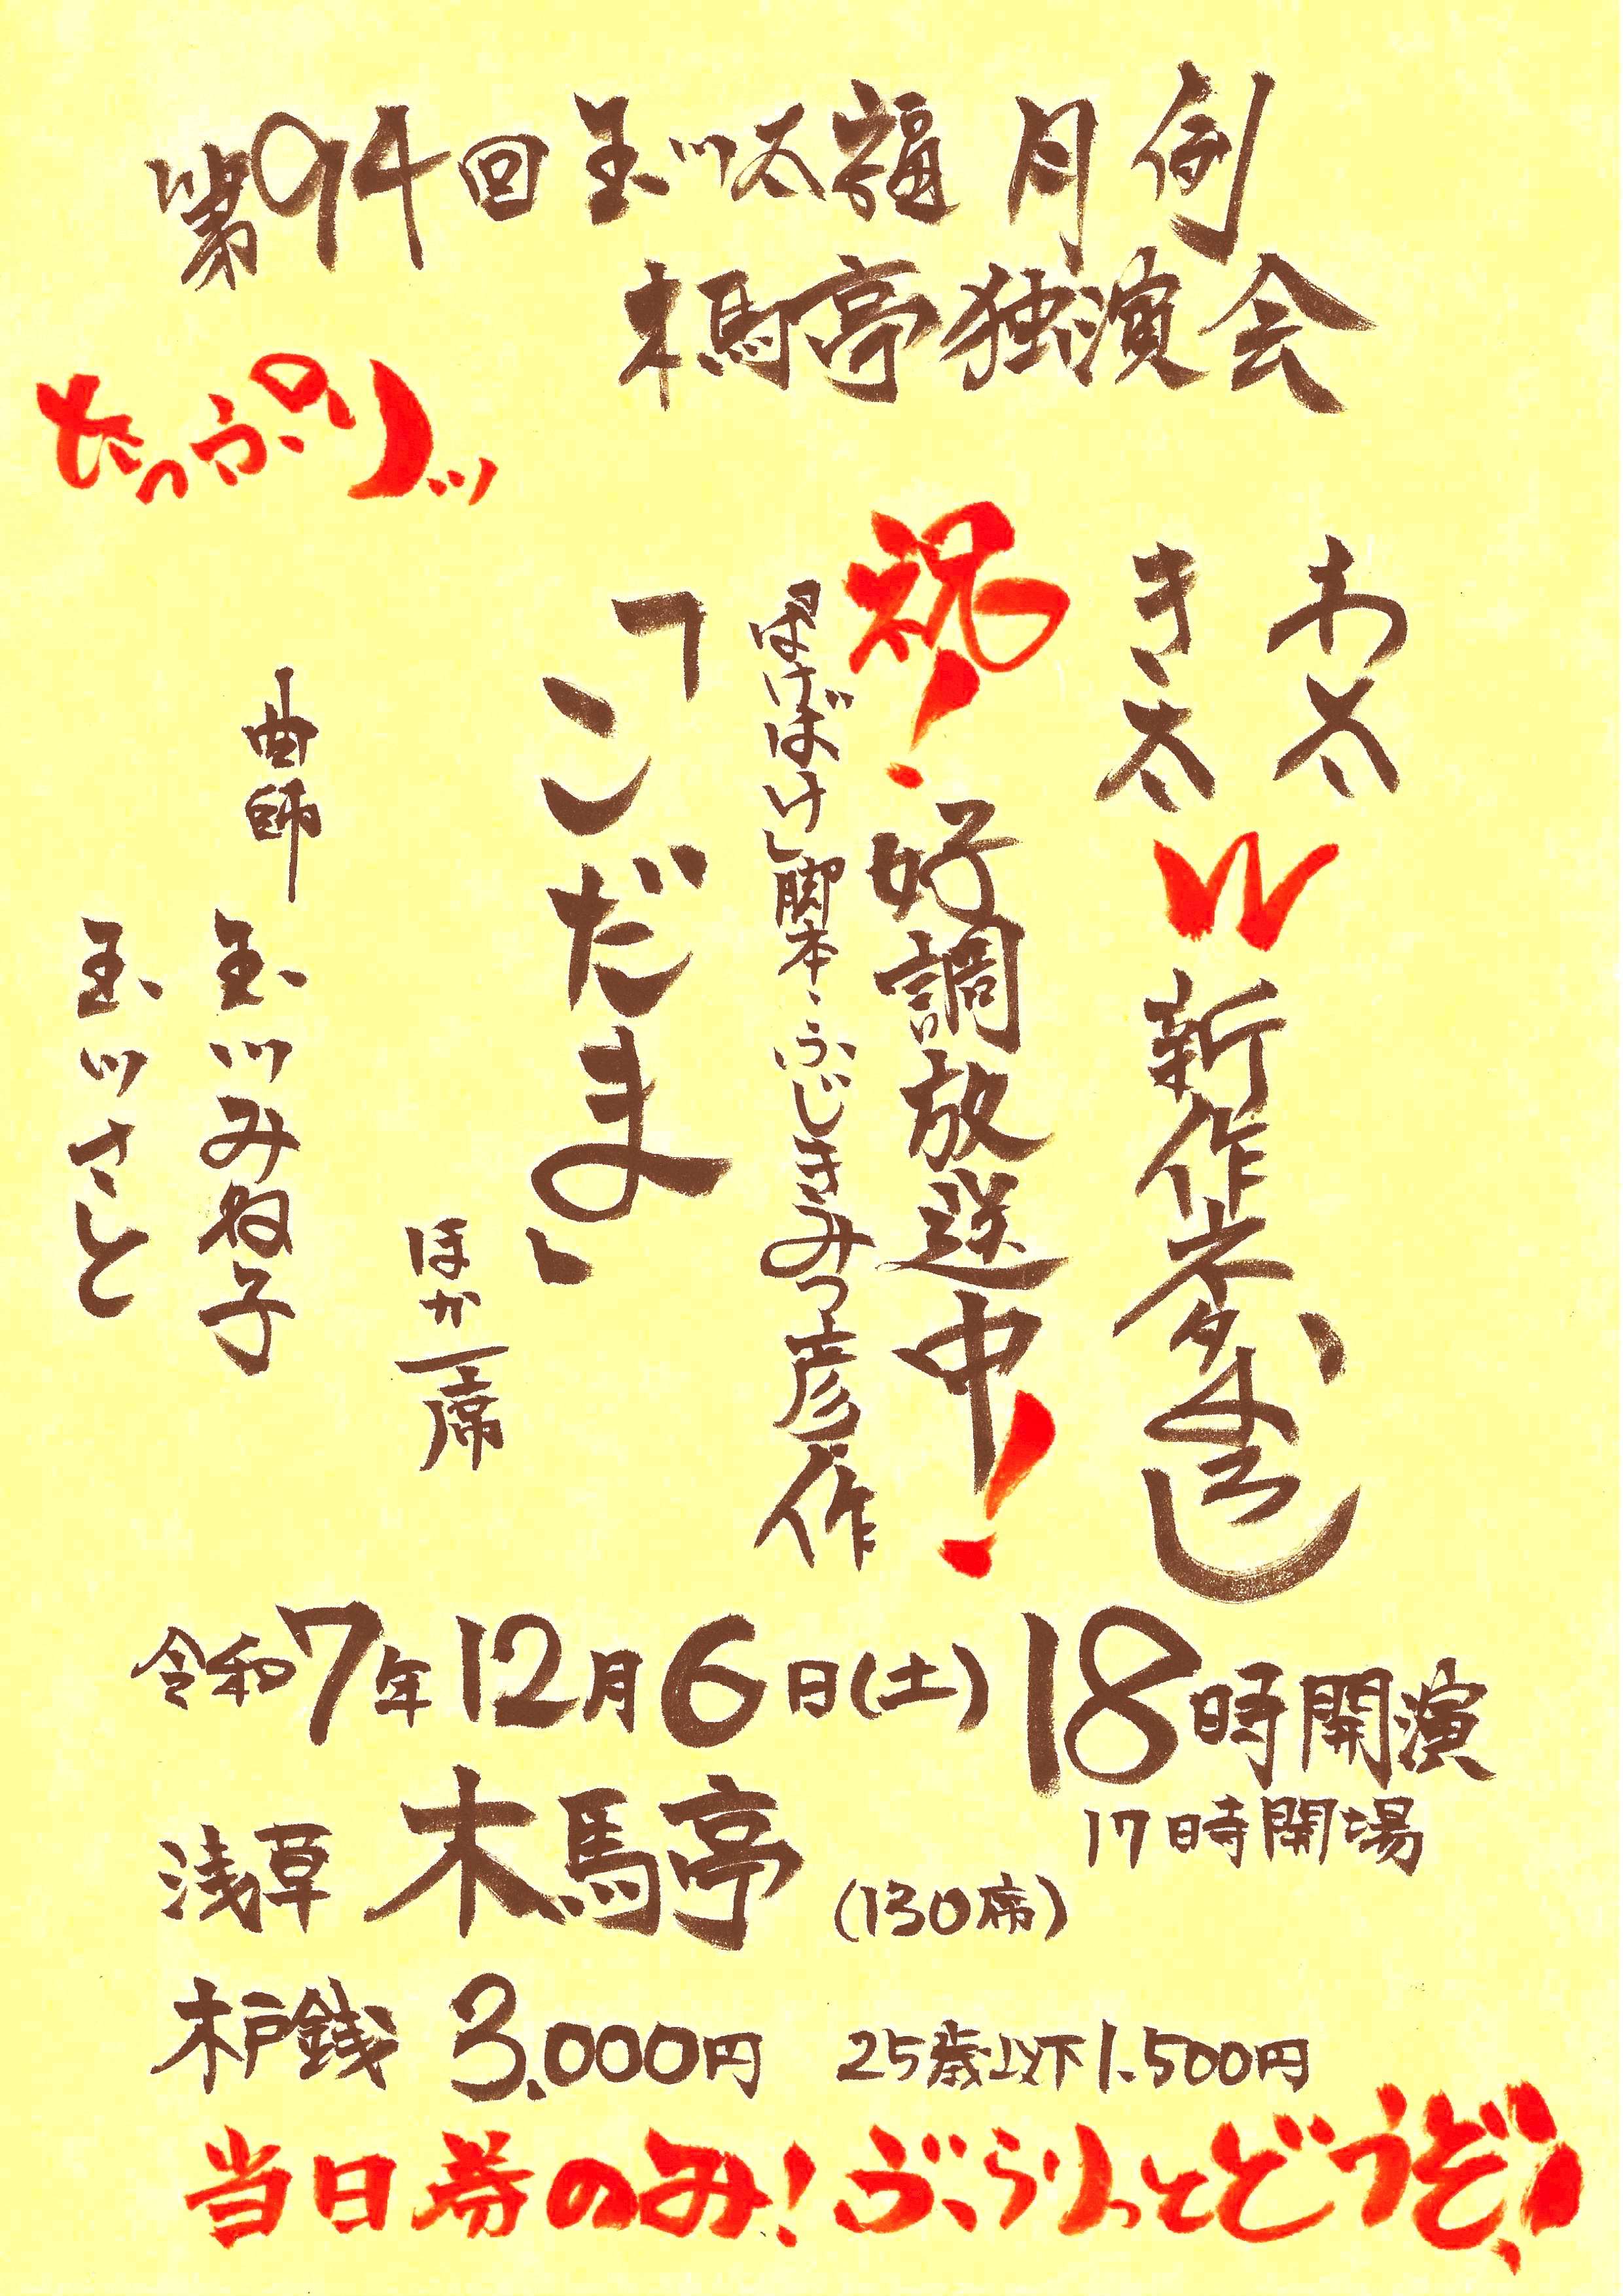 第94回 玉川太福 月例
木馬亭独演会
たっぷりッ
わ太
き太
W新作ネタ出し
祝!好調放送中!
「ばけばけ」脚本・ふじきみつ彦作
「こだま」
ほか一席
曲師 玉川みね子
玉川さと
令和7年12月6日(土) 18時開演
17時開場
浅草 木馬亭 (130席)
木戸銭 3,000円 25歳以下1,500円
当日券のみ!ぶらりっとどうぞ!